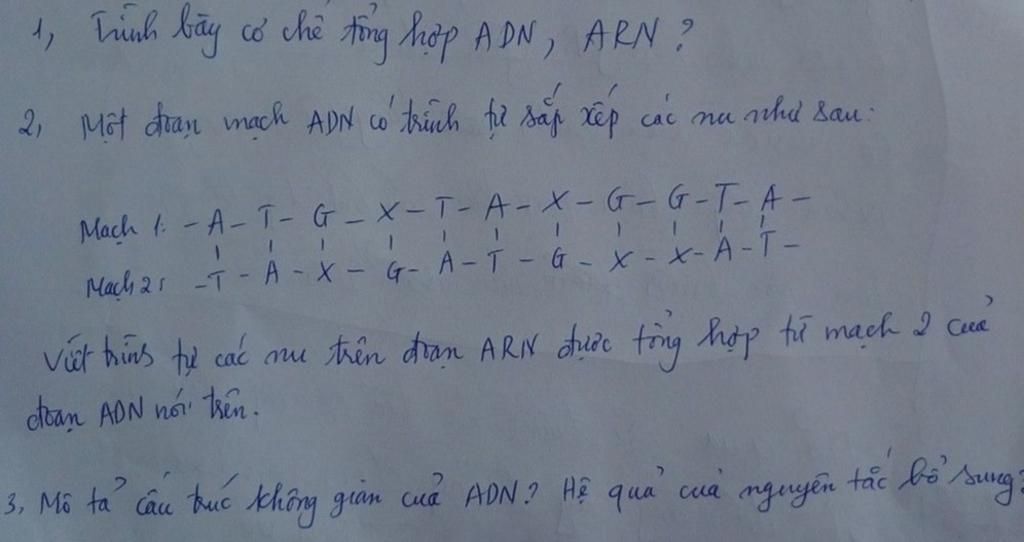 1, Trình bày cơ chế tổng hợp ADN, ARN?
2, Một đoạn mạch ADN có trình tự sắp xếp các nu như sau:
Mạch 1: - A - T - G - X - T - A - X - G - G - T - A -
Mạch 2: - T - A - X - G - A - T - G - X - X - A - T -
Viết trình tự các nu trên đoạn ARN được tổng hợp từ mạch 2 của
đoạn ADN nói trên.
3, Mô tả cấu trúc không gian của ADN? Hệ quả của nguyên tắc bổ sung?